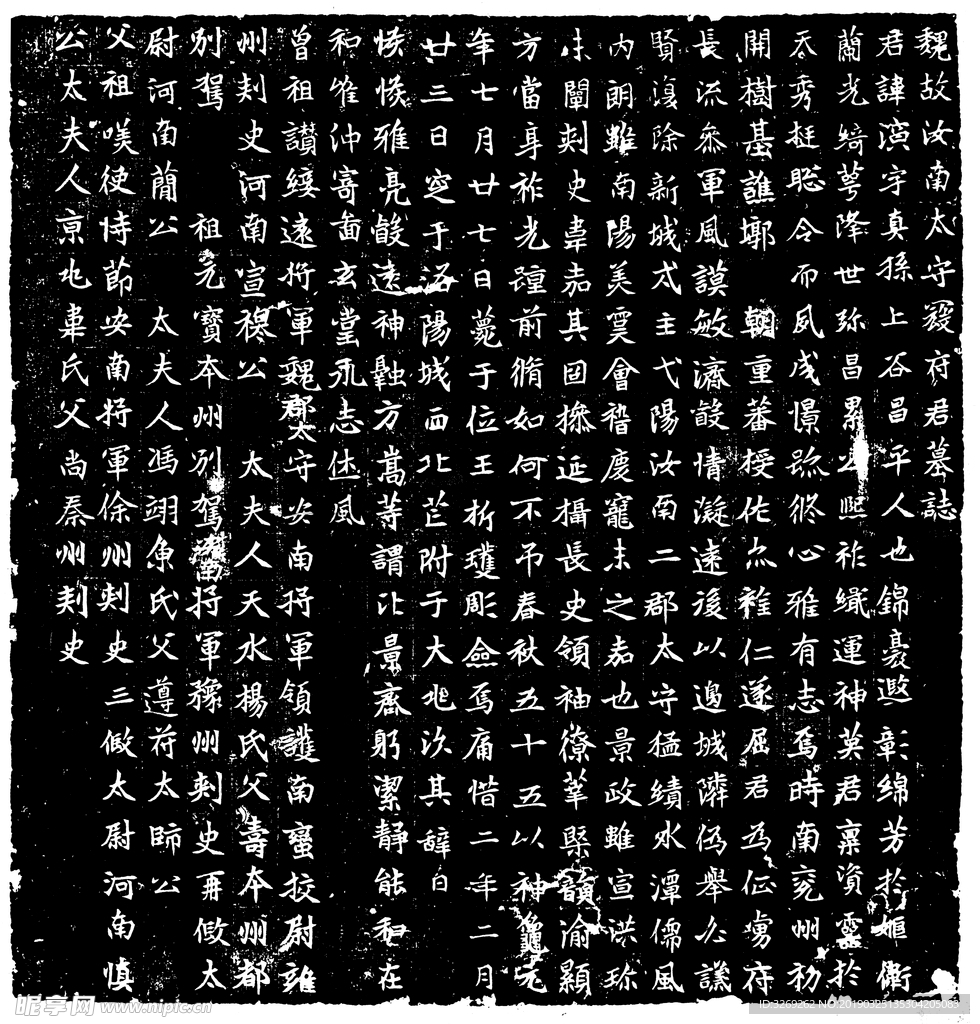 魏故汝南太守寇府君墓誌
君諱演字真孫上谷昌平人也錦裒遐彰綿芳於姬衛
蘭光綺萼降世弥昌累公熙祚纖運神英君稟資靈於
天秀挺聡令而夙成憬跡終心雅有志焉時南兗州初
開樹基譙郭 朝重蕃授佐尒雜仁遂屈君為征虜府
長流叅軍風謨敏濟毅情凝遠後以邊城隣偽舉必謀
賢復除新城戍主弋陽汝南二郡太守猛績水潭儒風
内朗雖南陽美寞會稽慶寵未之嘉也景政雖宣洪弥
未闡刾史韋嘉其固操延攝長史領袖僚莘槩韻渝顯
方當身祚光蹱前脩如何不弔春秋五十五以神龜元
年七月廿七日薨于位玉折瓊彫僉焉痛惜二年二月
廿三日窆于洛陽城西北芒附于大兆次其辞曰
悛悛雅亮毅遠神融方嵩等謂比景齊躬潔静能和在
和唯沖寄畵玄堂永志体風
曾祖讃綏遠将軍魏郡太守安南将軍領護南蠻挍尉雍
州刾史河南宣穆公 太夫人天水楊氏父壽本州都
別駕 祖元寶本州別駕安南将軍豫州刾史再假太
尉河南簡公 太夫人馮翊魚氏父遵苻太師公
父祖嘆使持節安南将軍徐州刾史三假太尉河南慎
公太夫人京兆韋氏父尚秦州刾史